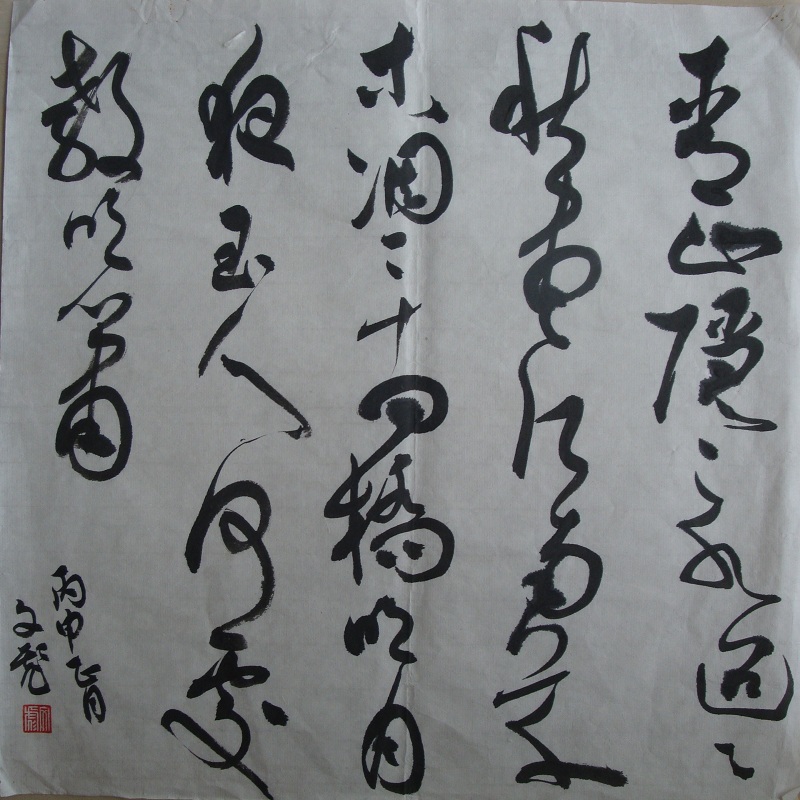 青山隱〻水迢〻
秋盡江南草
未凋二十四橋明月
夜玉人何處
教吹簫
丙申正月
文